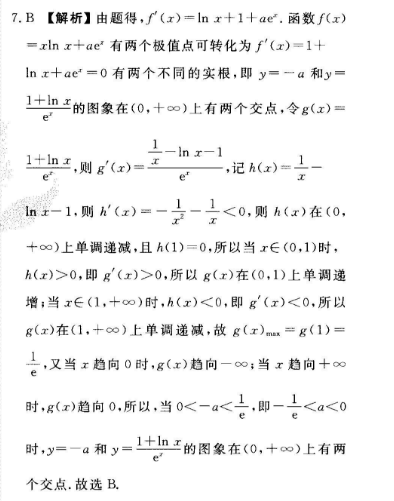 7. B 【解析】由题得, f′(x)=ln x+1+aeˣ. 函数 f(x)
=xln x+aeˣ 有两个极值点可转化为 f′(x)=1+
ln x+aeˣ=0 有两个不同的实根,即 y=-a 和 y=
(1+ln x)/eˣ 的图象在(0,+∞)上有两个交点,令 g(x)=
(1+ln x)/eˣ, 则 g′(x)=(1/x-ln x-1)/eˣ, 记 h(x)=1/x-
ln x-1, 则 h′(x)=-1/x²-1/x<0, 则 h(x)在(0,
+∞)上单调递减,且 h(1)=0,所以当 x∈(0,1)时,
h(x)>0,即 g′(x)>0,所以 g(x)在(0,1)上单调递
增;当 x∈(1,+∞)时,h(x)<0,即 g′(x)<0,所以
g(x)在(1,+∞)上单调递减,故 g(x)max=g(1)=
1/e,又当 x 趋向 0 时,g(x)趋向-∞;当 x 趋向+∞
时,g(x)趋向 0,所以,当 0<-a<1/e,即-1/e<a<0
时,y=-a 和 y=(1+ln x)/eˣ 的图象在(0,+∞)上有两
个交点.故选 B.